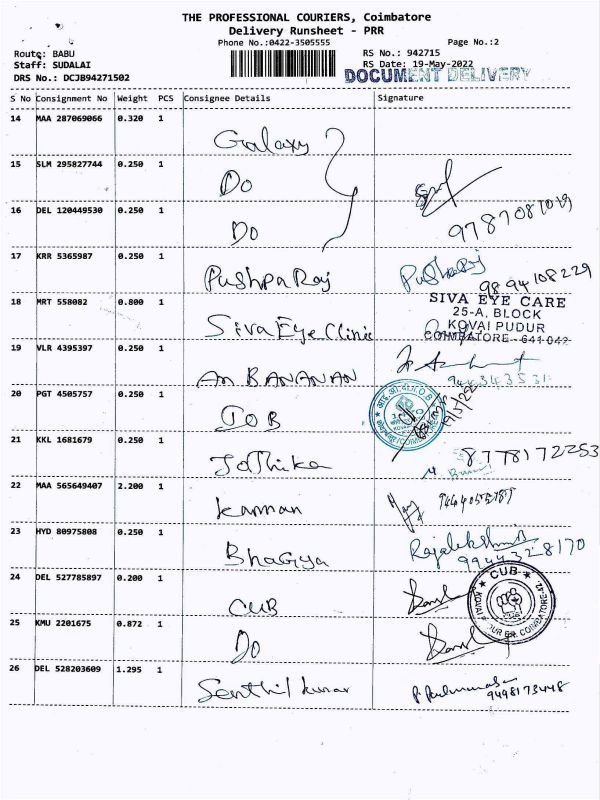 THE PROFESSIONAL COURIERS, Coimbatore
Delivery Runsheet - PRR
Phone No.:0422-3505555 Page No.:2
Route: BABU RS No.: 942715
Staff: SUDALAI RS Date: 19-May-2022
DRS No.: DCJB94271502 DOCUMENT DELIVERY
S No Consignment No Weight PCS Consignee Details Signature
14 MAA 287069066 0.320 1
Galaxy
15 SLM 295827744 0.250 1
Do
16 DEL 120449530 0.250 1
Do 9787087019
17 KRR 5365987 0.250 1
Pushpa Raj Pushparaj
9894108229
18 MRT 558082 0.800 1 SIVA EYE CARE
25-A, BLOCK
Siva Eye Clinic KOVAI PUDUR
COIMBATORE - 641 042
19 VLR 4395397 0.250 1
20 PGT 4505757 0.250 1
IOB
21 KKL 1681679 0.250 1
Jothika 8778172253
22 MAA 565649407 2.200 1
kannan
23 HYD 80975808 0.250 1
Bhagya Rajalekshmi
9944328170
24 DEL 527785897 0.200 1
CUB CUB
25 KMU 2201675 0.872 1
Do
26 DEL 528203609 1.295 1
Senthil kumar 9498173448